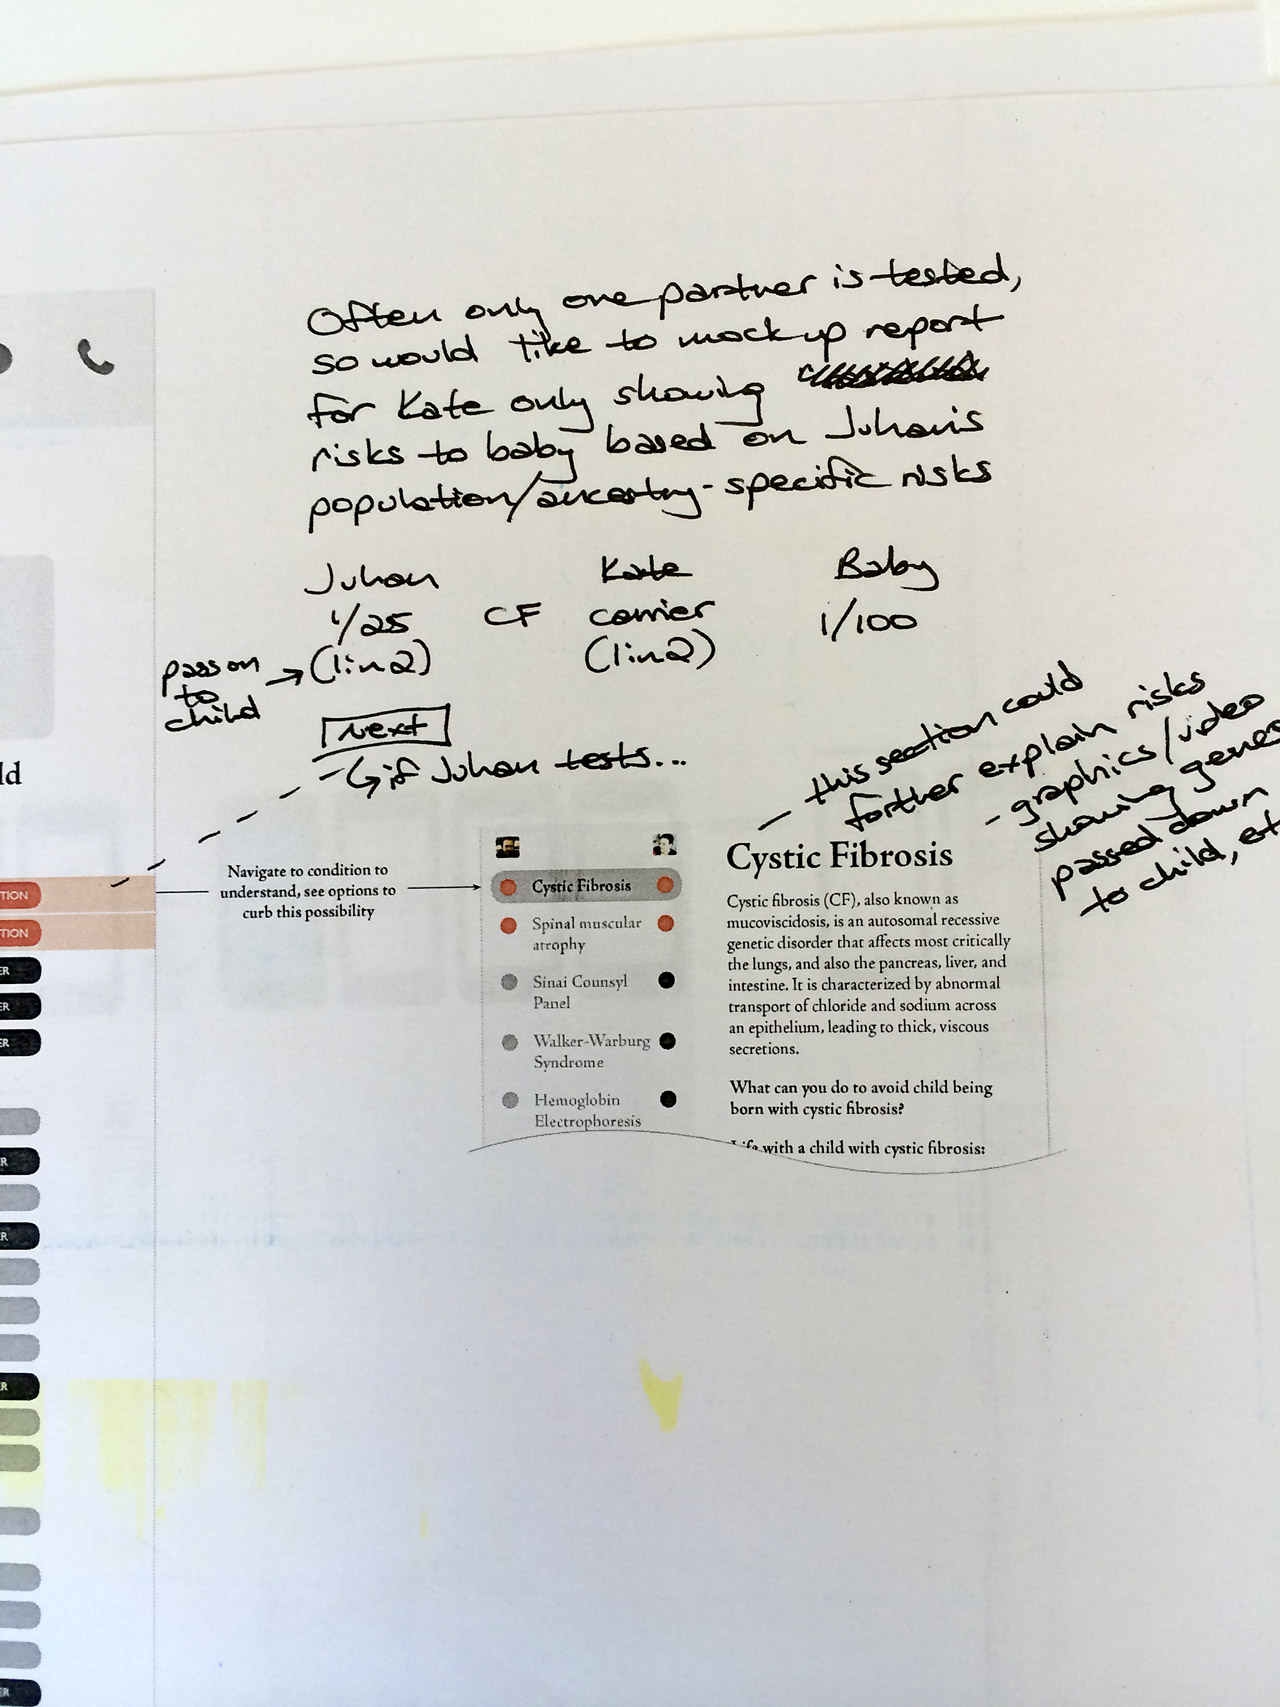 Often only one partner is tested,
so would like to mock up report
for Kate only showing
risks to baby based on Juhan's
population/ancestry-specific risks
Juhan Kate Baby
1/25 CF carrier 1/100
(1 in 2) (1 in 2)
pass on
to
child
Next
if Juhan tests...
this section could
further explain risks
- graphics/video
showing genes
passed down
to child, etc
ld
TION
TION
ER
ER
ER
R
R
R
ER
Navigate to condition to
understand, see options to
curb this possibility
Cystic Fibrosis
Spinal muscular
atrophy
Sinai Counsyl
Panel
Walker-Warburg
Syndrome
Hemoglobin
Electrophoresis
Cystic Fibrosis
Cystic fibrosis (CF), also known as
mucoviscidosis, is an autosomal recessive
genetic disorder that affects most critically
the lungs, and also the pancreas, liver, and
intestine. It is characterized by abnormal
transport of chloride and sodium across
an epithelium, leading to thick, viscous
secretions.
What can you do to avoid child being
born with cystic fibrosis?
Life with a child with cystic fibrosis: